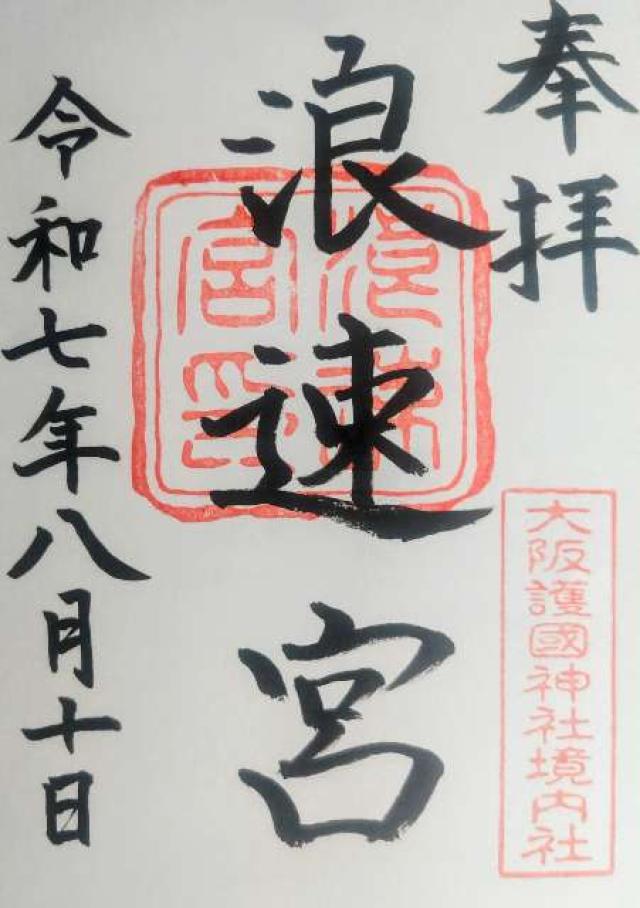 奉拝
浪速宮
大阪護國神社境内社
令和七年八月十日